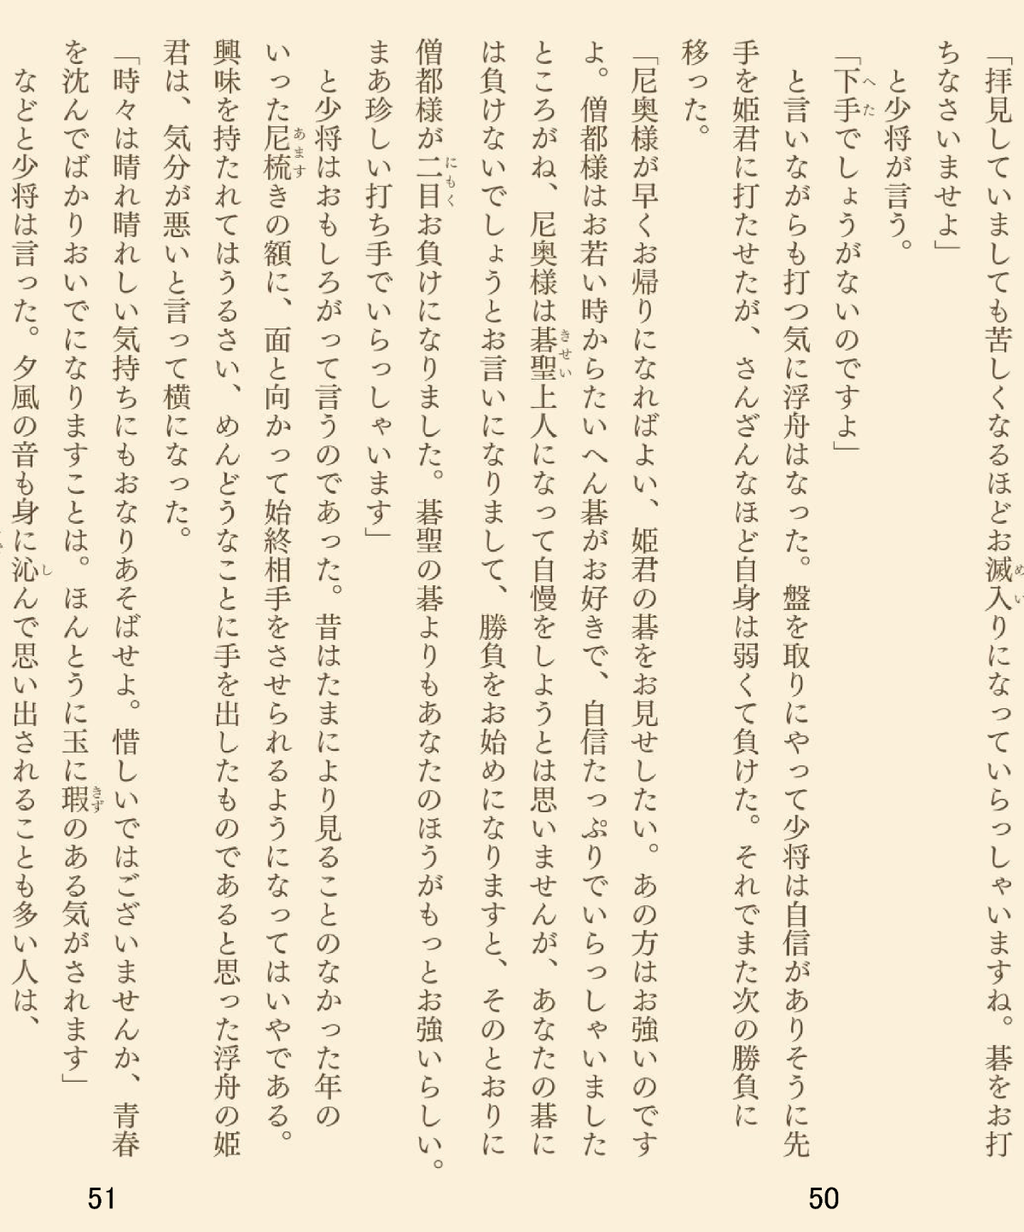 「拝見していましても苦しくなるほどお滅入りになっていらっしゃいますね。碁をお打
ちなさいませよ」
と少将が言う。
「下手でしょうがないのですよ」
と言いながらも打つ気に浮舟はなった。盤を取りにやって少将は自信がありそうに先
手を姫君に打たせたが、さんざんなほど自身は弱くて負けた。それでまた次の勝負に
移った。
「尼奥様が早くお帰りになればよい、姫君の碁をお見せしたい。あの方はお強いのです
よ。僧都様はお若い時からたいへん碁がお好きで、自信たっぷりでいらっしゃいました
ところがね、尼奥様は碁聖上人になって自慢をしようとは思いませんが、あなたの碁に
は負けないでしょうとお言いになりまして、勝負をお始めになりますと、そのとおりに
僧都様が二目お負けになりました。碁聖の碁よりもあなたのほうがもっとお強いらしい。
まあ珍しい打ち手でいらっしゃいます」
と少将はおもしろがって言うのであった。昔はたまにより見ることのなかった年の
いった尼梳きの額に、面と向かって始終相手をさせられるようになってはいやである。
興味を持たれてはうるさい、めんどうなことに手を出したものであると思った浮舟の姫
君は、気分が悪いと言って横になった。
「時々は晴れ晴れしい気持ちにもおなりあそばせよ。惜しいではございませんか、青春
を沈んでばかりおいでになりますことは。ほんとうに玉に瑕のある気がされます」
などと少将は言った。夕風の音も身に沁んで思い出されることも多い人は、
50
51